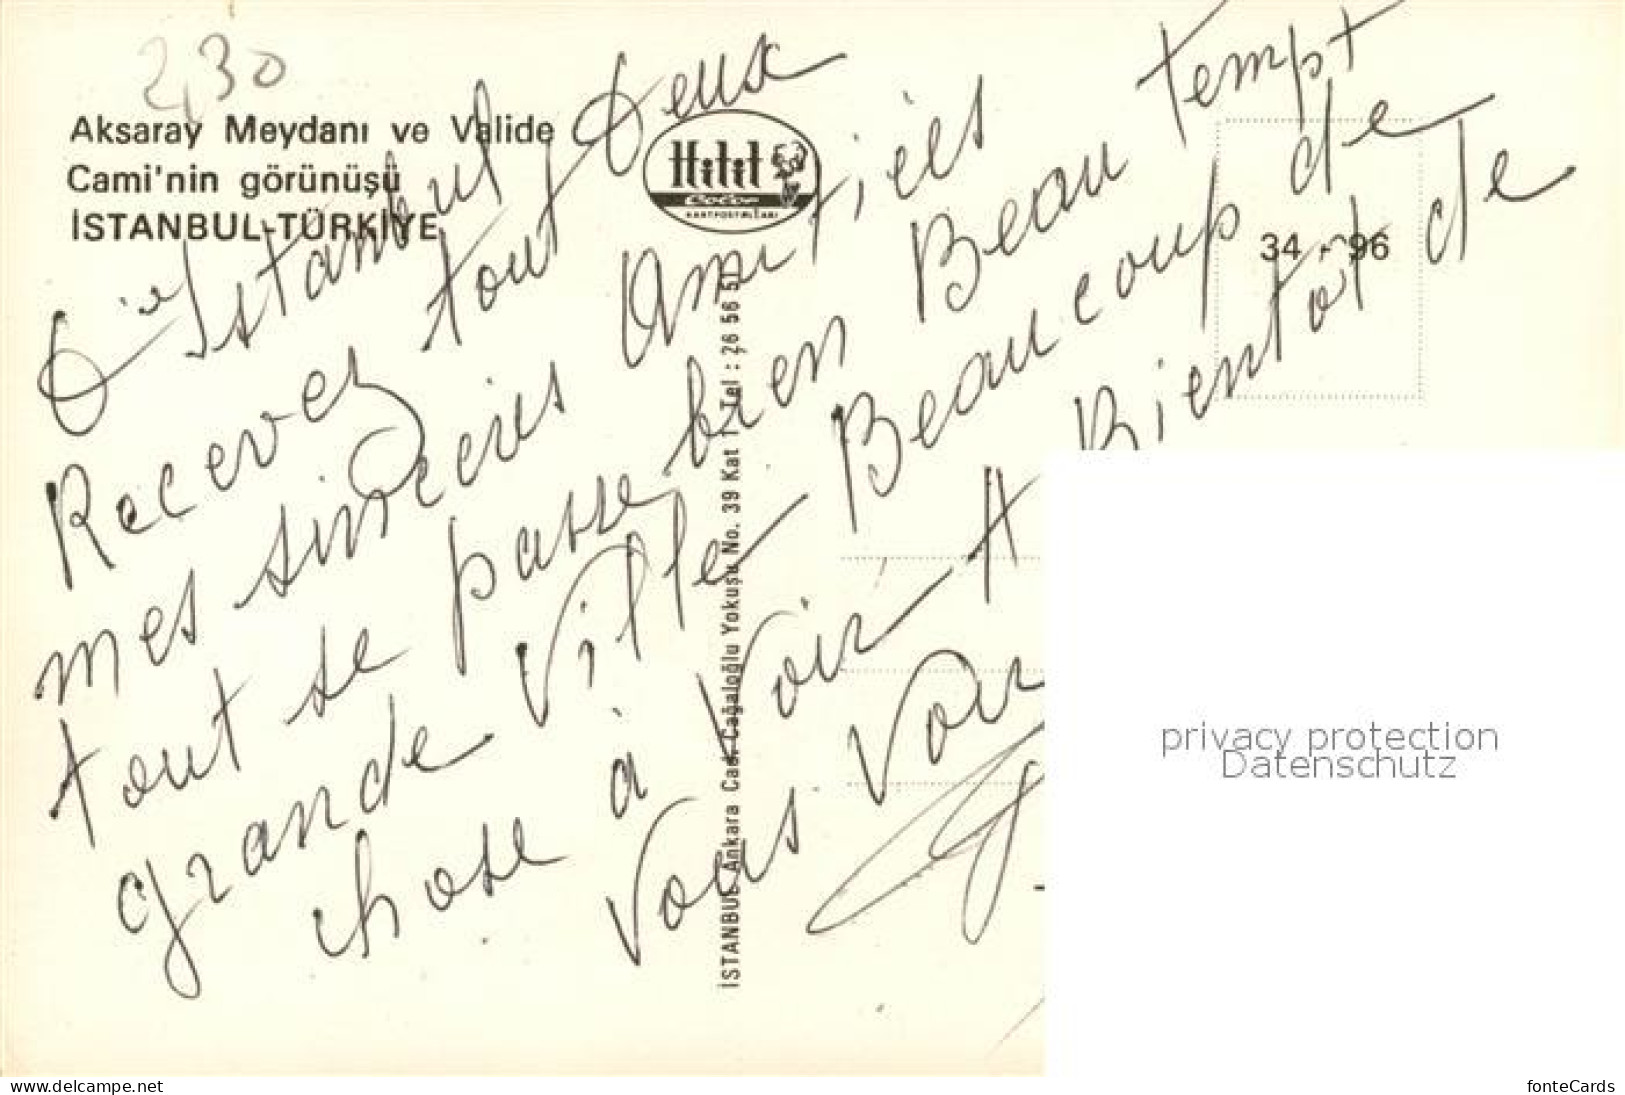 2,30
Aksaray Meydanı ve Valide
Cami'nin görünüşü
İSTANBUL-TÜRKİYE
Hitit
Color
KARTPOSTALLARI
34 - 96
İSTANBUL Ankara Cad. Cağaloğlu Yokuşu No. 39 Kat 1 Tel : 26 56 51
d'Istambul tout deux
Recevez
mes sinceres Amitiés
tout se passe bien Beau tempt
grande Ville Beaucoup de
chose à Voir A Bientot de
Vous Voir
privacy protection
Datenschutz
www.delcampe.net
fonteCards